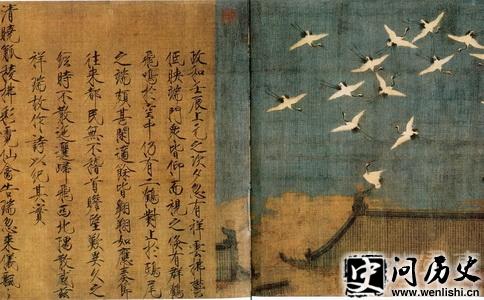 政和壬辰上元之次夕忽有祥雲拂鬱
低映端門眾皆仰而視之倏有群鶴
飛鳴於空中仍有二鶴對止於鴟尾
之端頗甚閑適餘皆翱翔如應奏節
往來都民無不稽首瞻望歎異久之
經時不散迤邐歸飛西北隅散感茲
祥瑞故作詩以紀其實
清曉觚稜拂彩霓仙禽告瑞忽來儀飄
史 问历史
www.wenlishi.cn